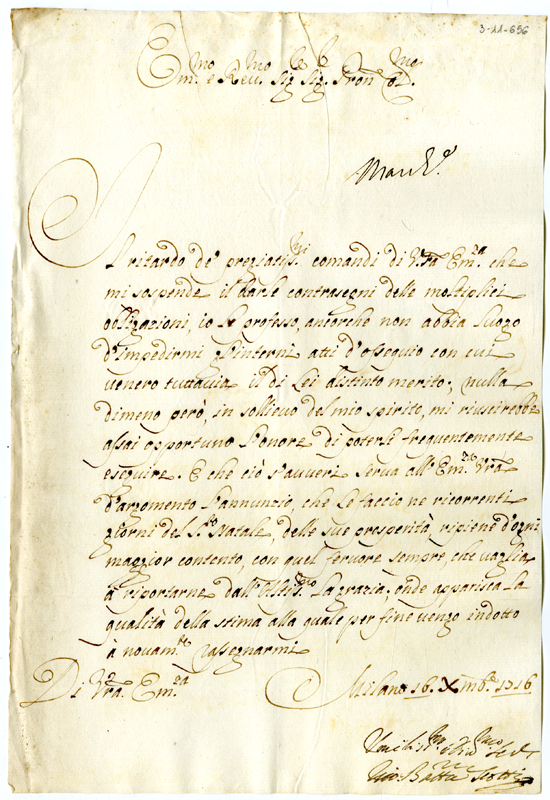 3-11-656
Em.mo e Rev.mo Sig.re Sig.re Pron. Col.mo
Il ritardo de' pregiatis.mi comandi di V.ra Em.za che
mi sospende il darle contrasegni delle moltiplici
obligazioni, io le professo, ancorche non abbia luogo
d'impedirmi gl'interni atti d'ossequio con cui
venero tuttavia il di Lei distinto merito; nulla
dimeno però, in sollievo del mio spirito, mi riuscirebbe
assai opportuno l'onore di poterli frequentemente
eseguire. E che ciò s'avveri serva all'Em.za V.ra
d'argomento l'annunzio, che le faccio ne ricorrenti
giorni del S.to Natale, delle sue prosperità, ripiene d'ogni
maggior contento, con quel fervore sempre, che vaglia
à riportarne dall'Altis.mo la grazia; onde apparisca la
qualità della stima alla quale per fine vengo indotto
à novam.te rassegnarmi
Di V.ra Em.za Milano 16. Xmb.e 1716
Gio: Batta Scotti